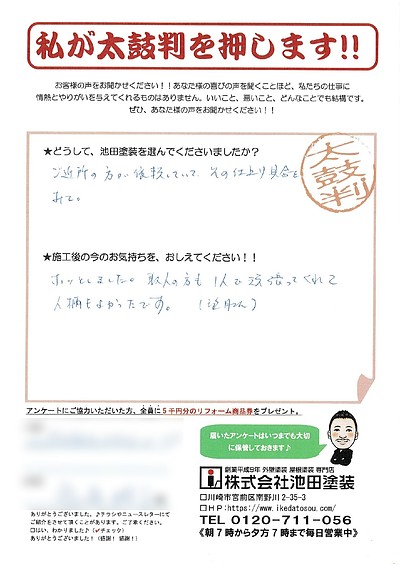 私が太鼓判を押します!!
お客様の声をお聞かせください！！あなた様の喜びの声を聞くことほど、私たちの仕事に
情熱とやりがいを与えてくれるものはありません。いいこと、悪いこと、どんなことでも結構です。
ぜひ、あなた様の声をお聞かせください！！
太鼓判
★どうして、池田塗装を選んでくださいましたか？
ご近所の方が依頼していて その仕上り具合を
みて。
★施工後の今のお気持ちを、おしえてください！！
ホッとしました。職人の方も1人で頑張ってくれて
人柄もよかったです。
アンケートにご協力いただいた方、全員に5千円分のリフォーム商品券をプレゼント。
届いたアンケートはいつまでも大切
に保管しておきます♪
創業平成9年 外壁塗装 屋根塗装 専門店
株式会社池田塗装
□川崎市宮前区南野川2-35-3
□HP:https://www.ikedatosou.com/
TEL 0120-711-056
《朝7時から夕方7時まで毎日営業中》
ありがとうございました。♪チラシやニュースレターにて
ご紹介をさせて頂くことがあります。ご了承ください。
□はい、わかりました♪(✓チェック)
ありがとうございました！(感謝！感謝！)